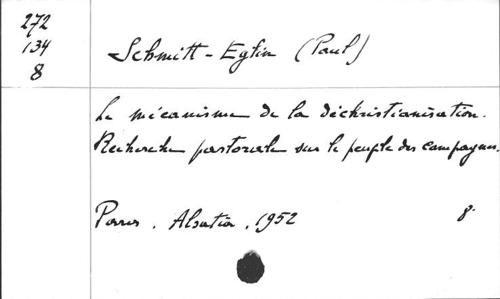 272
134
8
Schmitt-Eglin (Paul)
Le mécanisme de la déchristianisation.
Recherche pastorale sur le peuple des campagnes.
Paris. Alsatia, 1952 8°